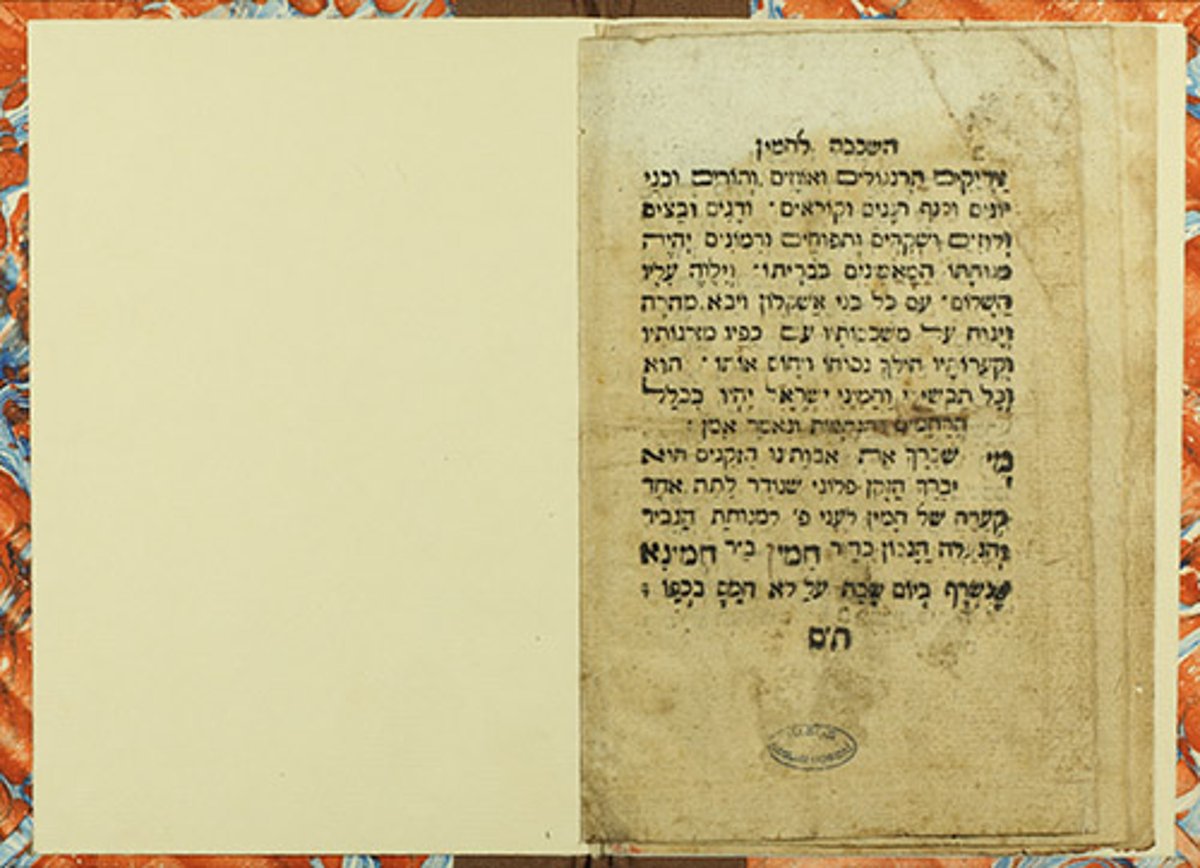 השכבה לחמין
צדיקים תרנגולים ואווזים ותורים ובני
יונים וכנף רננים וקוראים ודגים ובצים
ולוזים ושקדים ותפוחים ורמונים יהיה
מנוחתו המאמינים בבריתו וילוה עליו
השלום עם כל בני אשקלון ויבא מהרה
וינוח על משכבותיו עם כפיו מזרגותיו
וקערותיו הולך נכוחו אותו הוא
וכל תבשילי וחמיני ישראל יהיו בכלל
הרחמים והסליחות ונאמר אמן
מי שברך את אבותינו הזקנים הוא
יברך הזקן פלוני שנודר לתת אחד
קערה של חמין לעני פ' למנוחת הגביר
והנעלה הנבון כה״ר חמין ב״ר חמינא
שנשרף ביום שבת על לא חמס בכפו
ת״ם